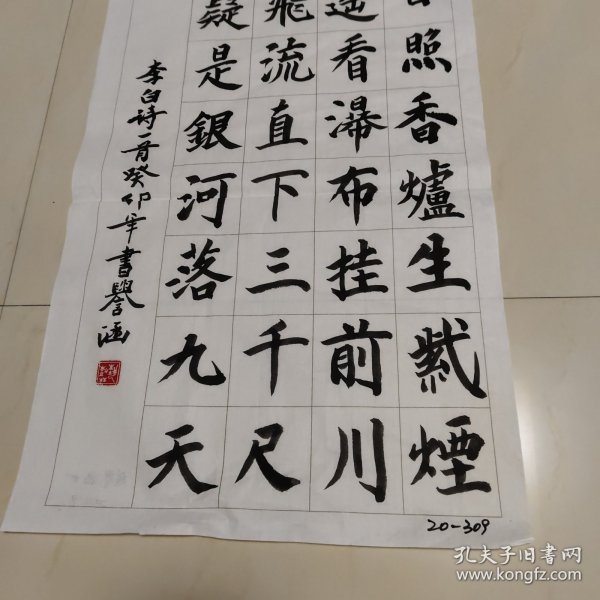 照香爐生紫煙
遥看瀑布挂前川
飛流直下三千尺
疑是銀河落九天
李白诗一首癸卯年書譽涵
20-309
孔夫子旧書网
www.kongfz.com